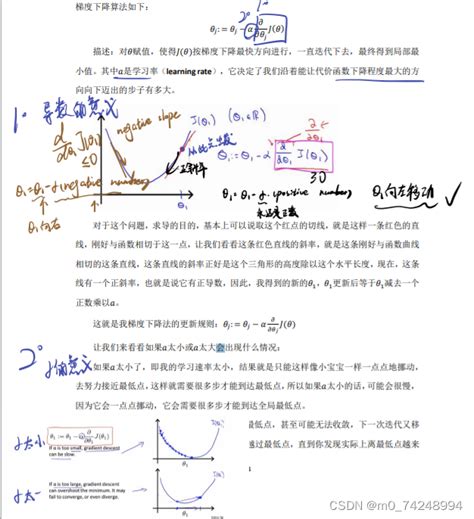 梯度下降算法如下：
2° 1°
θj := θj − α ∂/∂θj J(θ)
描述：对θ赋值，使得J(θ)按梯度下降最快方向进行，一直迭代下去，最终得到局部最
小值。其中α是学习率（learning rate），它决定了我们沿着能让代价函数下降程度最大的方
向向下迈出的步子有多大。
1° 导数的意义
negative slope
J(θ1) (θ1∈R)
d/dθ1 J(θ1) ≤0
θ1 := θ1 - α ∂/∂θ1 J(θ1)
≥0
θ1=θ1-α·negative number
θ1
θ1 = θ1 - α·(positive number)
θ1向左移动 ✓
θ1向右
永远是正数
对于这个问题，求导的目的，基本上可以说取这个红点的切线，就是这样一条红色的直
线，刚好与函数相切于这一点，让我们看看这条红色直线的斜率，就是这条刚好与函数曲线
相切的这条直线，这条直线的斜率正好是这个三角形的高度除以这个水平长度，现在，这条
线有一个正斜率，也就是说它有正导数，因此，我得到的新的θ1，θ1更新后等于θ1减去一个
正数乘以α。
这就是我梯度下降法的更新规则：θj := θj − α ∂/∂θj J(θ)
让我们来看看如果α太小或α太大会出现什么情况：
2° α的意义
如果α太小了，即我的学习速率太小，结果就是只能这样像小宝宝一样一点点地挪动，
去努力接近最低点，这样就需要很多步才能到达最低点，所以如果α太小的话，可能会很慢，
因为它会一点点挪动，它会需要很多步才能到达全局最低点。
α太小
θ1 := θ1 − α ∂/∂θ1 J(θ1)
J(θ1)
最低点，甚至可能无法收敛，下一次迭代又移
If α is too small, gradient descent
can be slow.
越过最低点，直到你发现实际上离最低点越来
θ1
α太大
If α is too large, gradient descent
can overshoot the minimum. It may
fail to converge, or even diverge.
J(θ1)
θ1
CSDN @m0_74248994